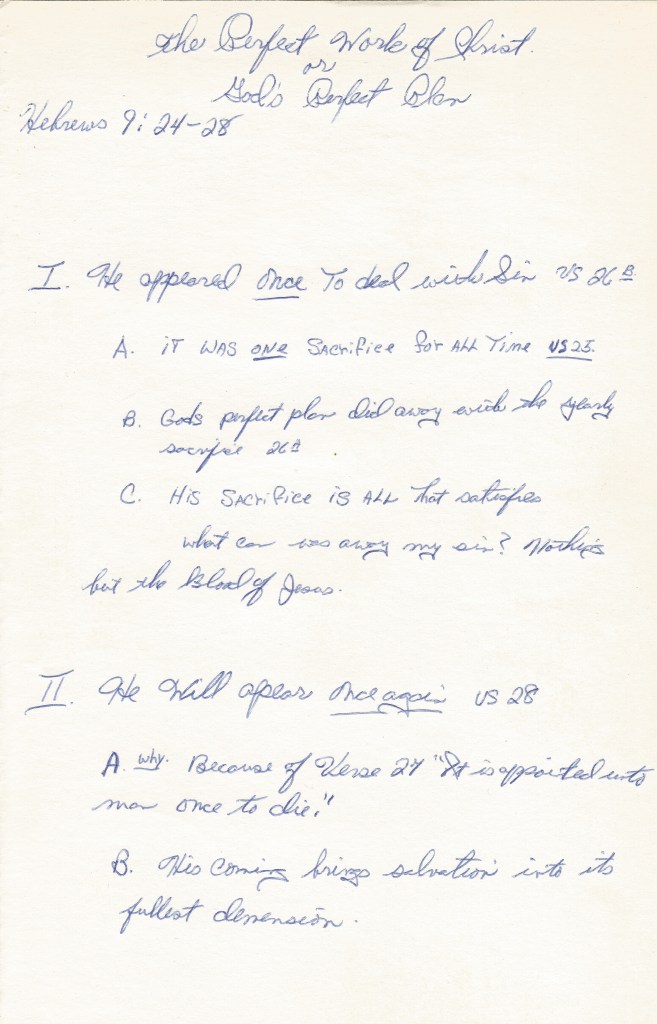 the Perfect Work of Christ.
or
God's Perfect Plan
Hebrews 9:24-28
I. He appeared once To deal with Sin vs 26 B.
A. iT WAS ONE SACrifice for ALL Time vs 25.
B. Gods perfect plan did away with the yearly
sacrifice 26A.
C. HiS SACrifice iS ALL That satisfies
what can was away my sin? Nothing
but the Blood of Jesus.
II. He Will apear once again vs 28
A. why. Because of Verse 27 "It is appointed unto
man once to die."
B. His Coming brings salvation into its
fullest demension.